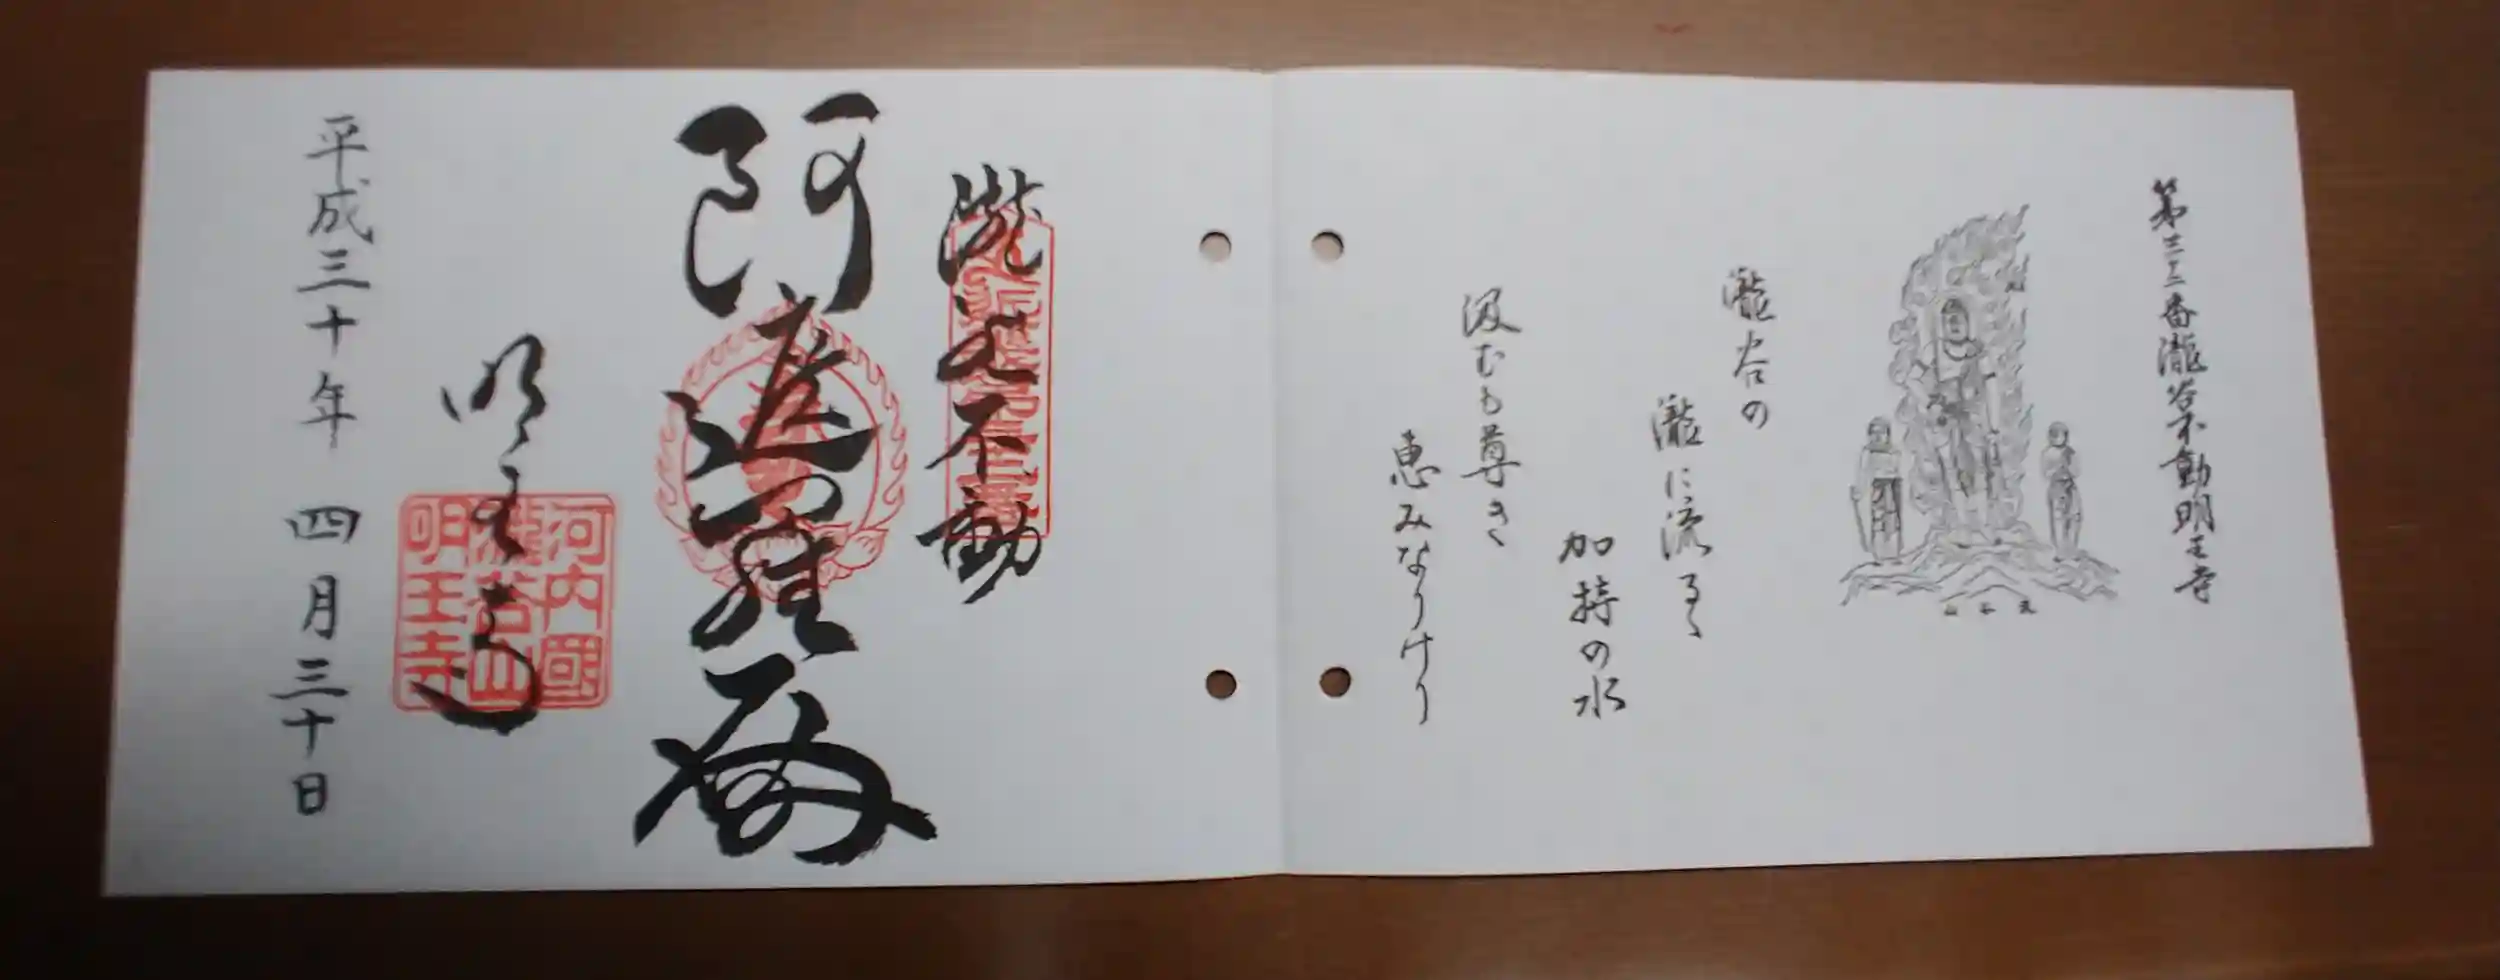 第三二番瀧谷不動明王寺
瀧谷の
瀧に流るゝ
加持の水
汲むも尊き
恵みなりけり
瀧谷不動
阿遮羅殿
明王寺
河内國
瀧谷山
明王寺
平成三十年 四月三十日